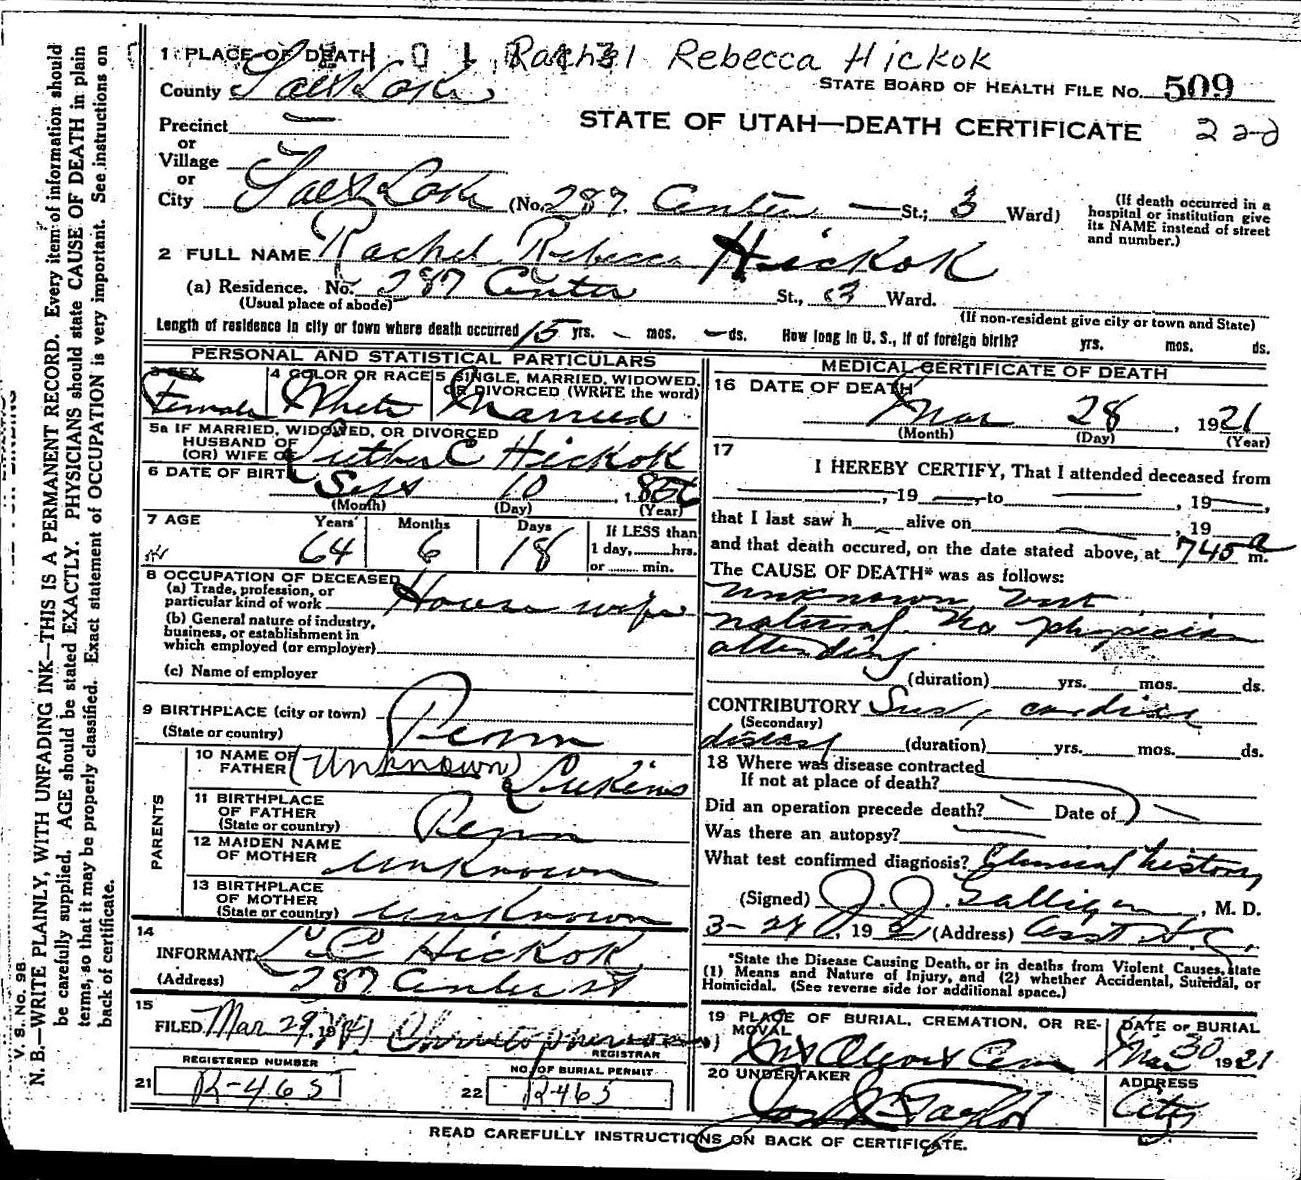 Rachel Rebecca Hickok
1 PLACE OF DEATH
STATE BOARD OF HEALTH FILE No. 509
County Salt Lake
STATE OF UTAH—DEATH CERTIFICATE 222
Precinct
or
Village
or
City Salt Lake (No. 287 Center St.; 3 Ward)
(If death occurred in a hospital or institution give its NAME instead of street and number.)
2 FULL NAME Rachel Rebecca Hickok
(a) Residence. No. 287 Center St., 3 Ward.
(Usual place of abode)
(If non-resident give city or town and State)
Length of residence in city or town where death occurred 15 yrs. – mos. – ds. How long in U. S., if of foreign birth? yrs. mos. ds.
PERSONAL AND STATISTICAL PARTICULARS
3 SEX Female
4 COLOR OR RACE White
5 SINGLE, MARRIED, WIDOWED, OR DIVORCED (WRITE the word) Married
5a IF MARRIED, WIDOWED, OR DIVORCED
HUSBAND OF
(OR) WIFE OF Luther C Hickok
6 DATE OF BIRTH Sept 10, 1856
(Month) (Day) (Year)
7 AGE Years 64 Months 6 Days 18
If LESS than
1 day, hrs.
or min.
8 OCCUPATION OF DECEASED
(a) Trade, profession, or
particular kind of work House wife
(b) General nature of industry,
business, or establishment in
which employed (or employer)
(c) Name of employer
9 BIRTHPLACE (city or town)
(State or country) Penn
PARENTS
10 NAME OF
FATHER (Unknown) Lukins
11 BIRTHPLACE
OF FATHER
(State or country) Penn
12 MAIDEN NAME
OF MOTHER Unknown
13 BIRTHPLACE
OF MOTHER
(State or country) Unknown
14
INFORMANT L C Hickok
(Address) 287 Center St
15
FILED Mar 29, 1921
REGISTRAR
REGISTERED NUMBER
21 R-465
NO. OF BURIAL PERMIT
22 R465
MEDICAL CERTIFICATE OF DEATH
16 DATE OF DEATH
Mar 28, 1921
(Month) (Day) (Year)
17
I HEREBY CERTIFY, That I attended deceased from
, 19 , to , 19 ,
that I last saw h alive on , 19
and that death occured, on the date stated above, at 745 a m.
The CAUSE OF DEATH* was as follows:
Unknown but
natural. No physician
attending
(duration) yrs. mos. ds.
CONTRIBUTORY Sus, cardiac
(Secondary)
disease (duration) yrs. mos. ds.
18 Where was disease contracted
If not at place of death?
Did an operation precede death? – Date of –
Was there an autopsy? –
What test confirmed diagnosis? Clinical history
(Signed) J. J. Galligan, M. D.
3-28, 1921 (Address) Asst H.C.
*State the Disease Causing Death, or in deaths from Violent Causes, state
(1) Means and Nature of Injury, and (2) whether Accidental, Suicidal, or
Homicidal. (See reverse side for additional space.)
19 PLACE OF BURIAL, CREMATION, OR REMOVAL
Mt Olivet Cem
DATE OF BURIAL
Mar 30 1921
20 UNDERTAKER
Taylor
ADDRESS
City
READ CAREFULLY INSTRUCTIONS ON BACK OF CERTIFICATE.
V. S. No. 98
N. B.—WRITE PLAINLY, WITH UNFADING INK—THIS IS A PERMANENT RECORD. Every item of information should
be carefully supplied. AGE should be stated EXACTLY. PHYSICIANS should state CAUSE OF DEATH in plain
terms, so that it may be properly classified. Exact statement of OCCUPATION is very important. See instructions on
back of certificate.